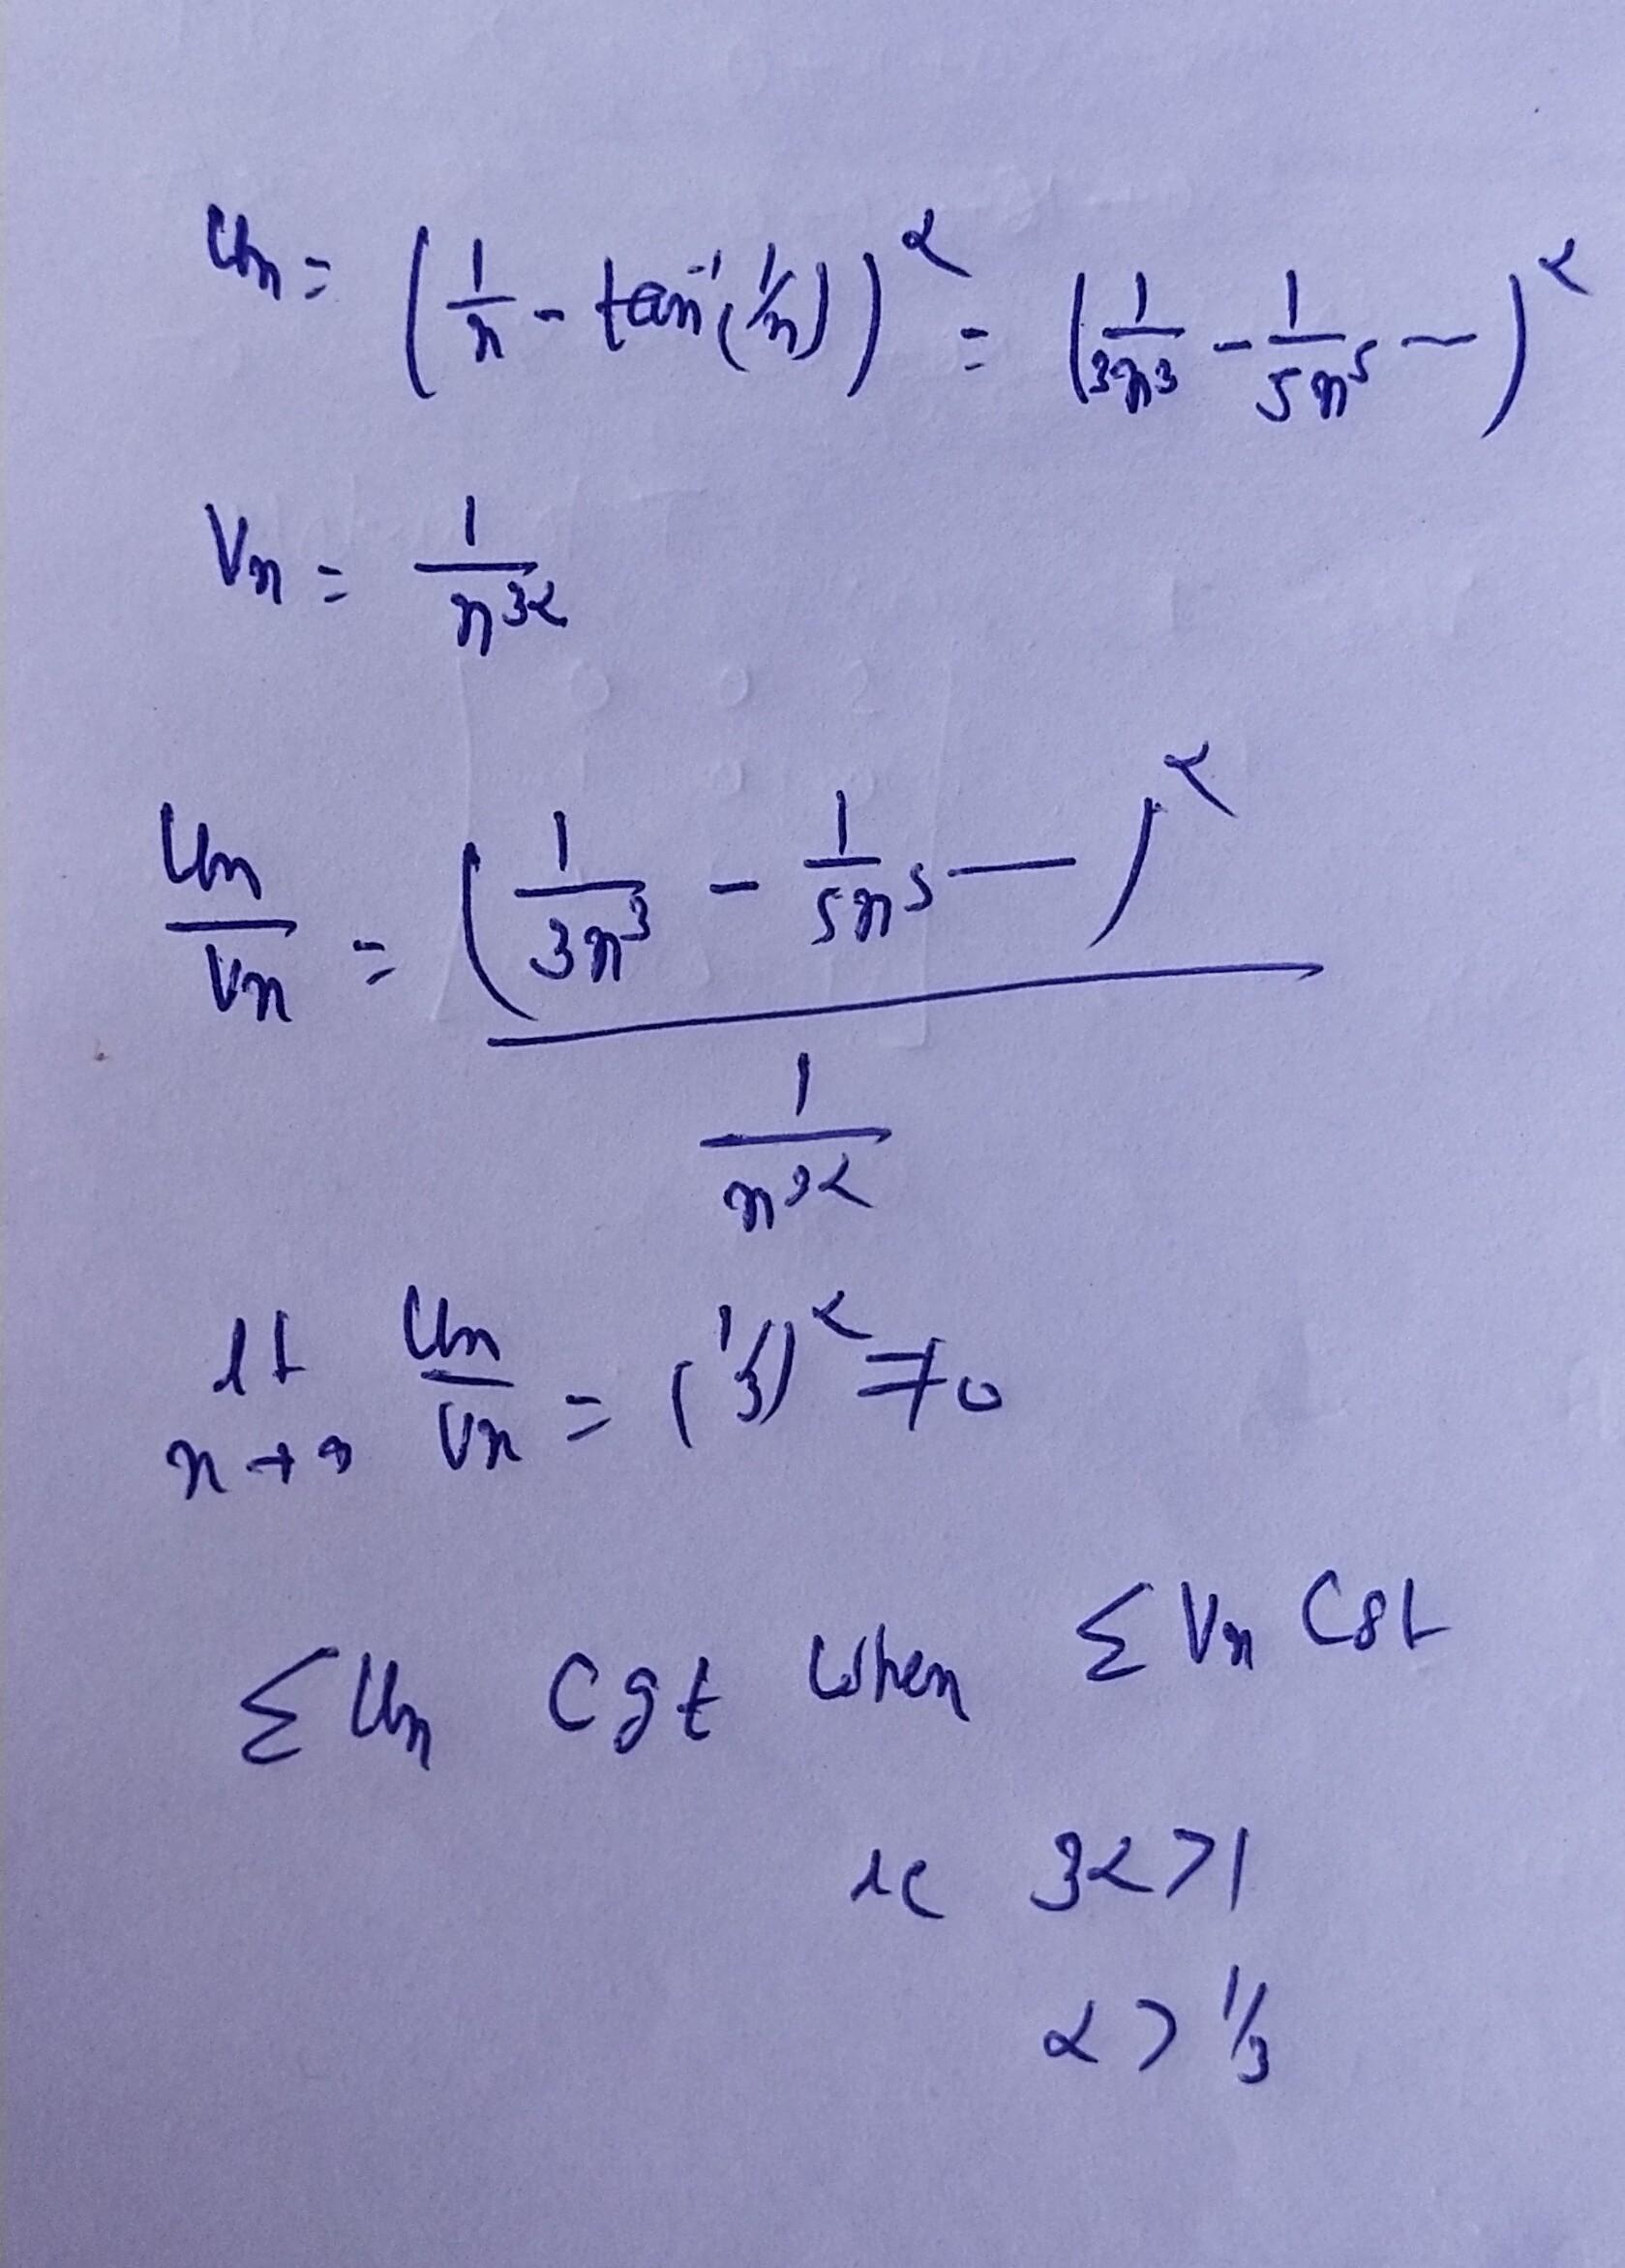 Un = (1/n - tan⁻¹(1/n))^α = (1/3n³ - 1/5n⁵ —)^α
Vn = 1/n^3α
Un/Vn = (1/3n³ - 1/5n⁵ —)^α / 1/n^3α
lt n→∞ Un/Vn = (1/3)^α ≠ 0
Σ Un Cgt when Σ Vn Cgt
ie 3α > 1
α > 1/3